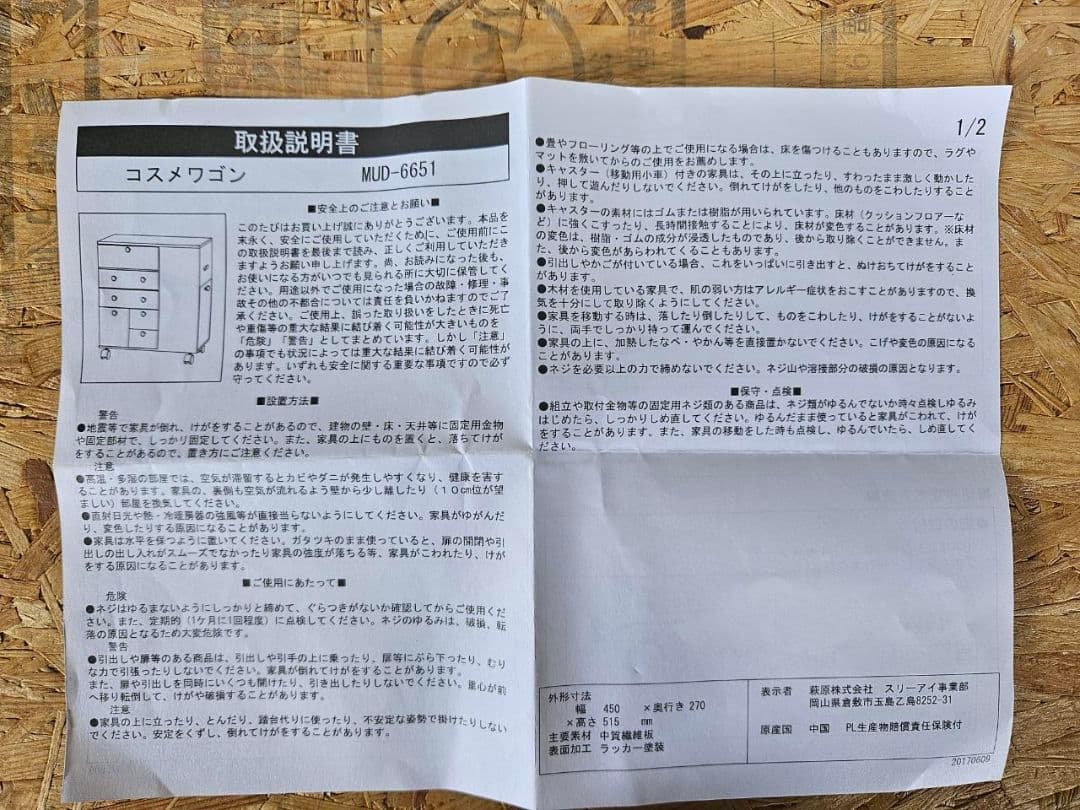 取扱説明書
コスメワゴン MUD-6651
■安全上のご注意とお願い■
このたびはお買い上げ誠にありがとうございます。本品を
末永く、安全にご使用していただくために、ご使用前にこ
の取扱説明書を最後まで読み、正しくご利用していただき
ますようお願い申し上げます。尚、お読みになった後も、
お使いになる方がいつでも見られる所に大切に保管してく
ださい。用途以外でご使用になった場合の故障・修理・事
故その他の不都合については責任を負いかねますのでご了
承ください。ご使用上、誤った取り扱いをしたときに死亡
や重傷等の重大な結果に結び着く可能性が大きいものを
「危険」「警告」としてまとめています。しかし「注意」
の事項でも状況によっては重大な結果に結び着く可能性が
あります。いずれも安全に関する重要な事項ですので必ず
守ってください。
■設置方法■
警告
●地震等で家具が倒れ、けがをすることがあるので、建物の壁・床・天井等に固定用金物
や固定部材で、しっかり固定してください。また、家具の上にものを置くと、落ちてけが
をすることがあるので、置き方にご注意ください。
注意
●高温・多湿の部屋では、空気が滞留するとカビやダニが発生しやすくなり、健康を害す
ることがあります。家具の、裏側も空気が流れるよう壁から少し離したり(10cm位が望
ましい)部屋を換気してください。
●直射日光や熱・冷暖房器の強風等が直接当らないようにしてください。家具がゆがんだ
り、変色したりする原因になることがあります。
●家具は水平を保つように置いてください。ガタツキのまま使っていると、扉の開閉や引
出しの出し入れがスムーズでなかったり家具の強度が落ちる等、家具がこわれたり、けが
をする原因になることがあります。
■ご使用にあたって■
危険
●ネジはゆるまないようにしっかりと締めて、ぐらつきがないか確認してからご使用くだ
さい。また、定期的(1ケ月に1回程度)に点検してください。ネジのゆるみは、破損、転
落の原因となるため大変危険です。
警告
●引出しや扉等のある商品は、引出しや引手の上に乗ったり、扉等にぶら下ったり、むり
な力で引張ったりしないでください。家具が倒れてけがをすることがあります。
また、扉や引出しを同時にいくつも開けたり、引き出したりしないでください。重心が前
へ移り転倒して、けがや破損することがあります。
注意
●家具の上に立ったり、とんだり、踏台代りに使ったり、不安定な姿勢で掛けたりしない
でください。安定をくずし、倒れてけがをすることがあります。
1/2
●畳やフローリング等の上でご使用になる場合は、床を傷つけることもありますので、ラグや
マットを敷いてからのご使用をお薦めします。
●キャスター(移動用小車)付きの家具は、その上に立ったり、すわったまま激しく動かした
り、押して遊んだりしないでください。倒れてけがをしたり、他のものをこわしたりすること
があります。
●キャスターの素材にはゴムまたは樹脂が用いられています。床材(クッションフロアーな
ど)に強くこすったり、長時間接触することにより、床材が変色することがあります。※床材
の変色は、樹脂・ゴムの成分が浸透したものであり、後から取り除くことができません。ま
た、後から変色があらわれてくることもあります。
●引出しやかごが付いている場合、これをいっぱいに引き出すと、ぬけおちてけがをすること
があります。
●木材を使用している家具で、肌の弱い方はアレルギー症状をおこすことがありますので、換
気を十分にして取り除くようにしてください。
●家具を移動する時は、落したり倒したりして、ものをこわしたり、けがをすることがないよ
うに、両手でしっかり持って運んでください。
●家具の上に、加熱したなべ・やかん等を直接置かないでください。こげや変色の原因になる
ことがあります。
●ネジを必要以上の力で締めないでください。ネジ山や溶接部分の破損の原因となります。
■保守・点検■
●組立や取付金物等の固定用ネジ類のある商品は、ネジ類がゆるんでないか時々点検しゆるみ
はじめたら、しっかりしめ直してください。ゆるんだまま使っていると家具がこわれて、けが
をすることがあります。また、家具の移動をした時も点検し、ゆるんでいたら、しめ直してく
ださい。
外形寸法
幅 450 ×奥行き 270
×高さ 515 mm
主要素材 中質繊維板
表面加工 ラッカー塗装
表示者 萩原株式会社 スリーアイ事業部
岡山県倉敷市玉島乙島8252-31
原産国 中国 PL生産物賠償責任保険付
20170609